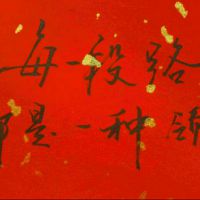 每一段路
都是一种领